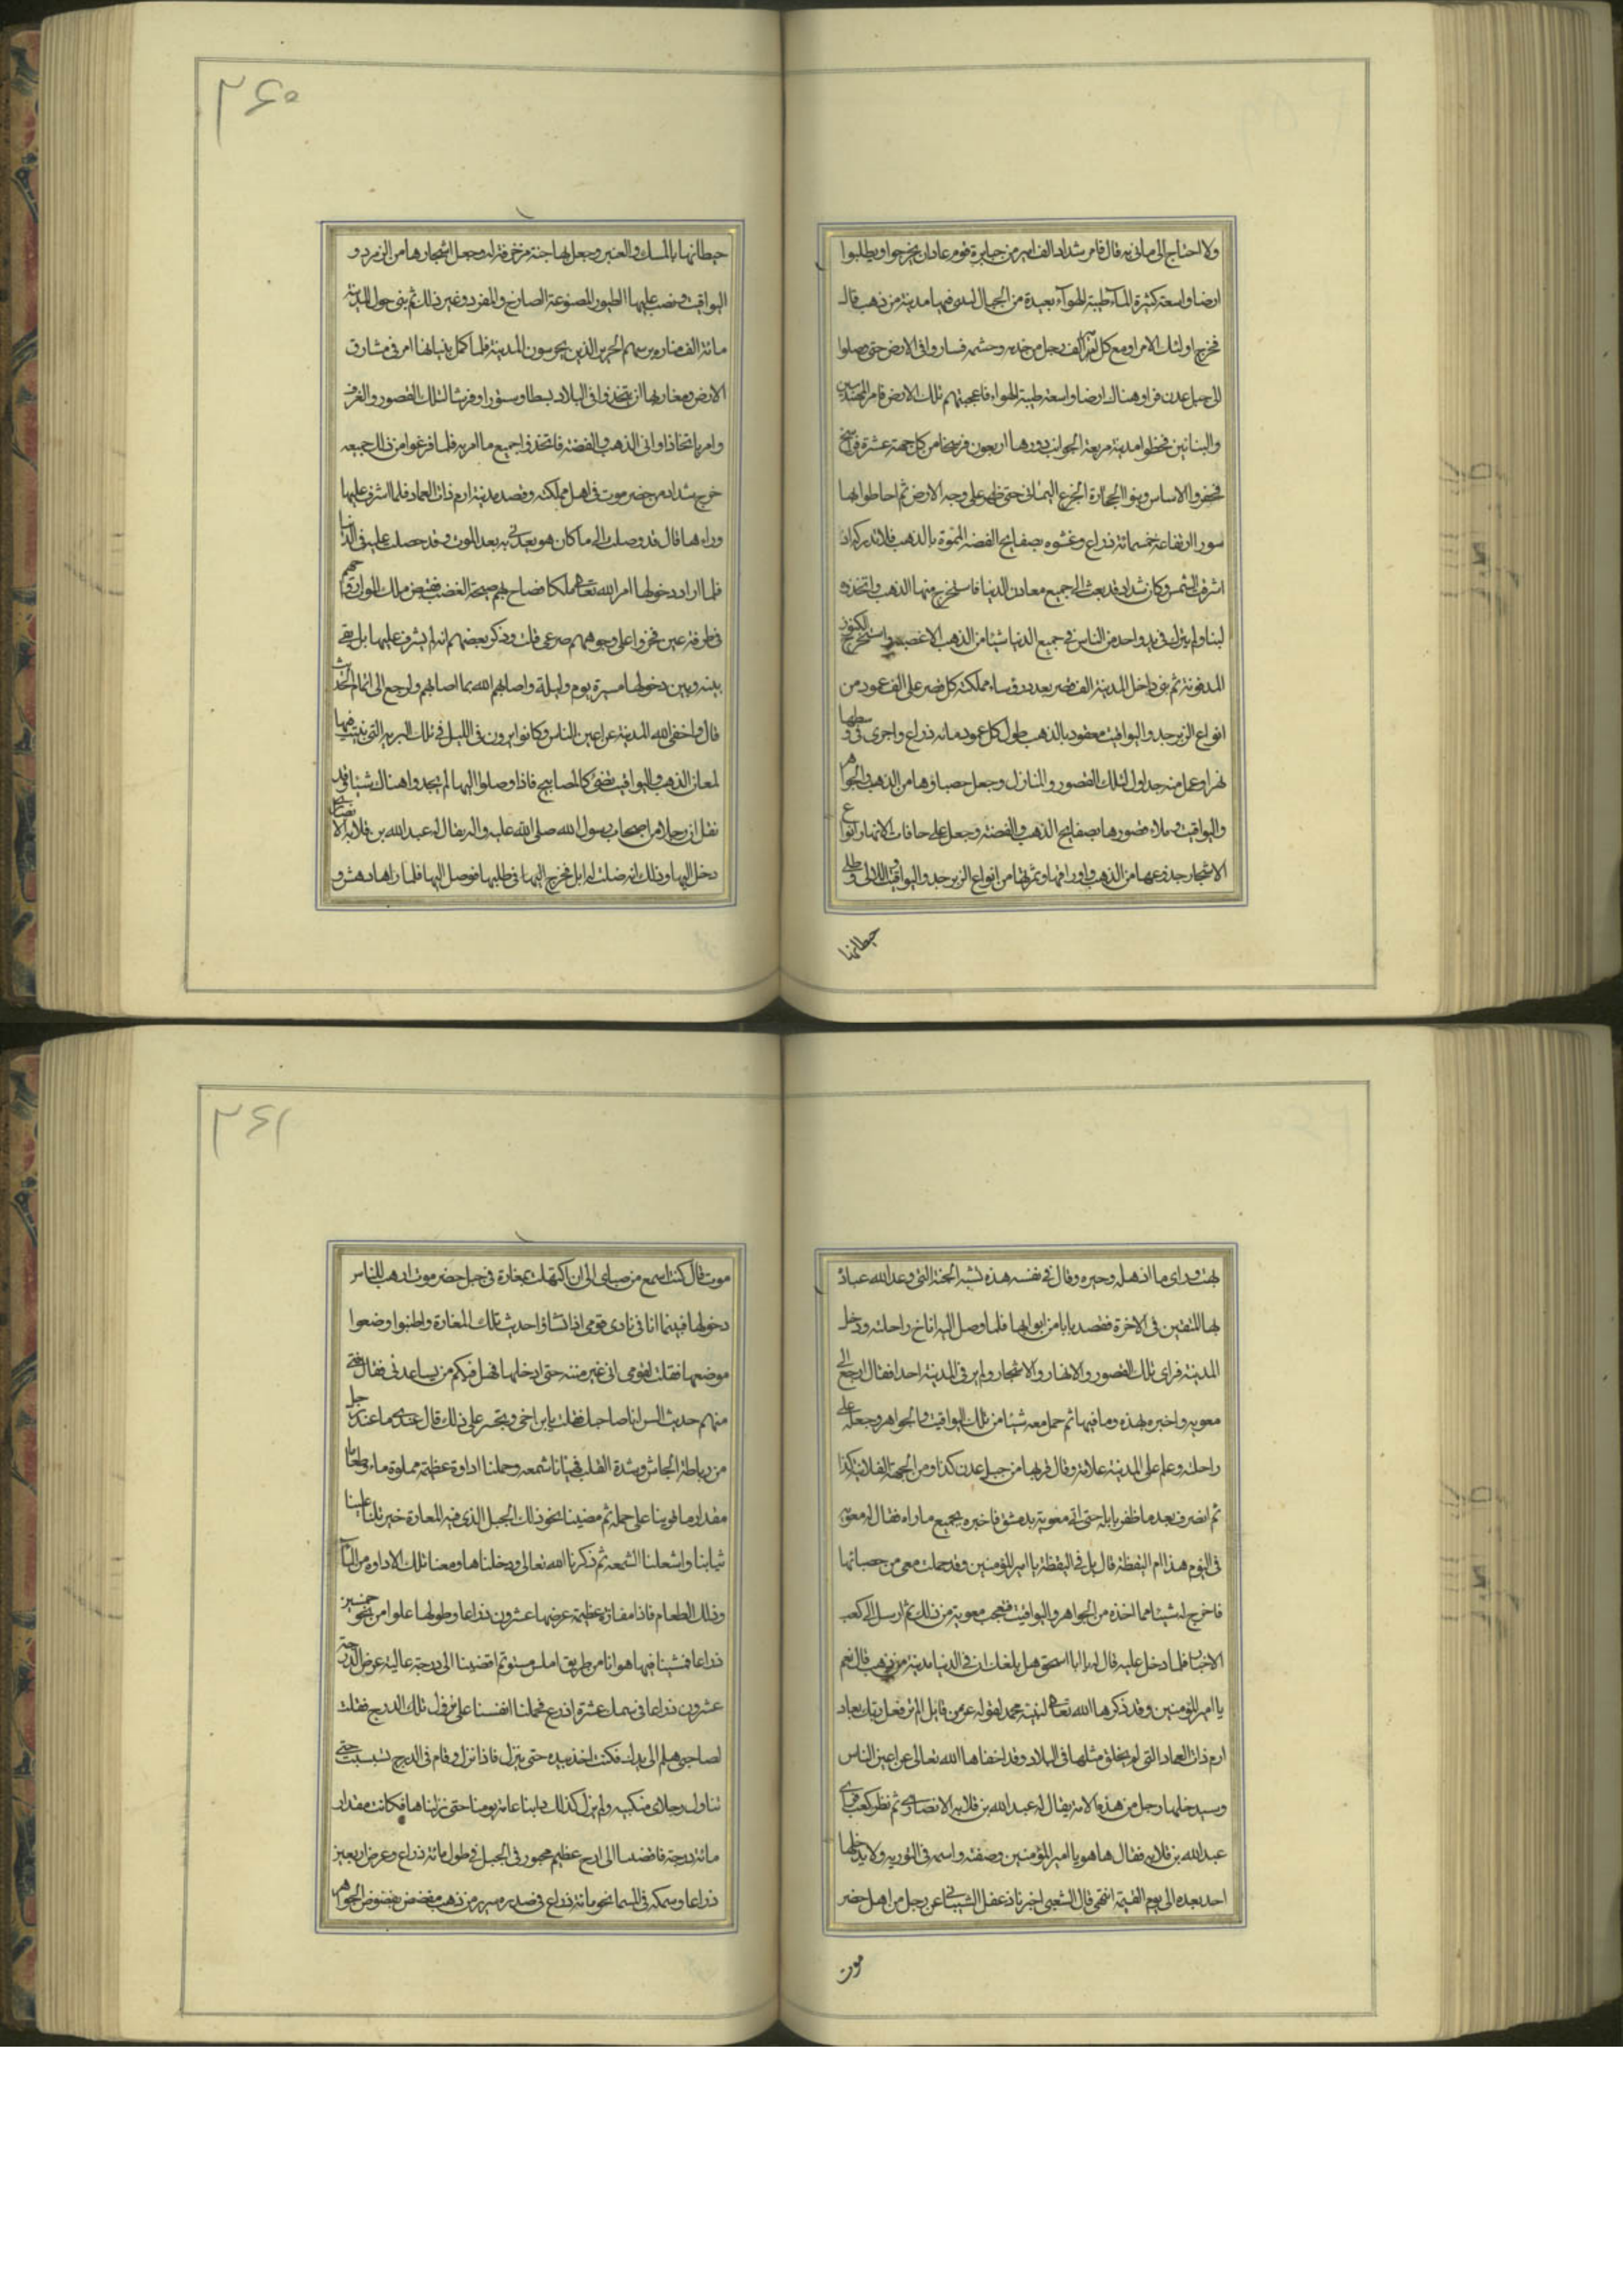 ولا احتاج الى ما فيه قال فامر شداد الف امير من جبابرة قوم عاد ان يخرجوا ويطلبوا
ارضا واسعة كثيرة الماء طيبة الهواء بعيدة من الجبال ليبنى فيها مدينة من ذهب قال
فخرج اولئك الامراء ومع كل امير الف رجل من خدمه وحشمه فساروا فى الارض حتى وصلوا
الى جبل عدن فراوا هناك ارضا واسعة طيبة الهواء فاعجبتهم تلك الارض فامر المهندسين
والبنائين فخطوا مدينة مربعة الجوانب دورها اربعون فرسخا من كل جهة عشرة فراسخ
فحفروا الاساس وبنوا الحجارة الجزع اليمانى حتى ظهر على وجه الارض ثم احاطوا بها
سورا ارتفاعه خمسمائة ذراع وغشوه بصفايح الفضة المموة بالذهب فلا تدركه اذا
اشرقت الشمس وكان شداد قد بعث الى جميع معادن الدنيا فاستخرج منها الذهب واتخذه
لبنا ولم يترك فى يد واحد من الناس فى جميع الدنيا شيئا من الذهب الا غصبه واستخرج الكنوز
المدفونة ثم بنى داخل المدينة الف قصر بعدد رؤساء مملكته كل قصر على الف عمود من
انواع الزبرجد واليواقيت معقود بالذهب طول كل عمود مائة ذراع واجرى فى وسطها
نهرا وعمل منه جداول لتلك القصور والمنازل وجعل حصباؤها من الذهب والجواهر
واليواقيت وملاء قصورها بصفايح الذهب والفضة وجعل على حافات الانهار انواع
الاشجار جذوعها من الذهب واوراقها وثمرتها من انواع الزبرجد واليواقيت واللالى وطلى
حيطانها
حيطانها بالمسك والعنبر وجعل لها جنة مزخرفة له وجعل اشجارها من الزمرد و
اليواقيت ونصب عليها الطيور المصنوعة الصادح والمفرد وغير ذلك ثم بنى حول المدينة
مائة الف منارة برسم الحرس الذين يحرسون المدينة فلما كمل بنيانها امر فى مشارق
الارض ومغاربها ان يتخذوا فى البلاد بسطا وستورا وفرشا لتلك القصور والغرف
وامر باتخاذ اوانى الذهب والفضة فاتخذوا جميع ما امر به فلما فرغوا من ذلك جميعه
خرج شداد من حضرموت فى اهل مملكته وقصد مدينة ارم ذات العماد فلما اشرف عليها
وراءها قال قد وصلت الى ما كان هود يعدنى به بعد الموت وقد حصلت عليه فى الدنيا
فلما اراد دخولها امر الله تعالى ملكا فصاح بهم صيحة الغضب فقبض ملك الموت ارواحهم
فى طرفة عين فخروا على وجوههم صرعى قلت وذكر بعضهم انه لم يشرف عليها بل بقى
بينه وبين دخولها مسيرة يوم وليلة واصابهم الله بما اصابهم ولرجع الى اتمام الحديث
قال واخفى الله المدينة عن اعين الناس وكانوا يرون فى الليل فى تلك البرية التى بنيت فيها
لمعان الذهب واليواقيت تضىء كالمصابيح فاذا وصلوا اليها لم يجدوا هناك شيئا وقد
نقل ان رجلا من اصحاب رسول الله صلى الله عليه واله يقال له عبد الله بن قلابه الانصارى
دخل اليها وذلك انه ضلت له ابل فخرج اليها فى طلبها فوصل اليها فلما راها دهش و
بهت وراى ما اذهله وحيره وقال فى نفسه هذه تشبه الجنة التى وعد الله عباده
بها للمتقين فى الاخرة فقصد بابا من ابوابها فلما وصل اليه اناخ راحلته ودخل
المدينة فراى تلك القصور والانهار والاشجار ولم ير فى المدينة احدا فقال ارجع الى
معوية واخبره بهذه وما فيها ثم حمل معه شيئا من تلك اليواقيت والجواهر وجعله على
راحلته وعلم على المدينة علامة وقال قربها من جبل عدن كذا ومن الجهة الفلانية كذا
ثم انصرف بعد ما ظفر بابله حتى اتى معوية بدمشق فاخبره بجميع ماراه فقال له معوية
فى النوم هذا ام اليقظة قال بل فى اليقظة يا امير المؤمنين وقد حملت معى من حصبائها
فاخرج له شيئا مما اخذه من الجواهر واليواقيت فعجب معوية من ذلك ثم ارسل الى كعب
الاحبار فلما دخل عليه قال له يا ابا اسحق هل بلغك ان فى الدنيا مدينة من ذهب قال نعم
يا امير المؤمنين وقد ذكرها الله تعالى لنبيه محمد لقوله عز من قايل الم تر فعل ربك بعاد
ارم ذات العماد التى لم يخلق مثلها فى البلاد وقد اخفاها الله تعالى عن اعين الناس
وسيدخلها رجل من هذه الامة يقال له عبد الله بن قلابه الانصارى ثم نظر كعب فراى
عبد الله بن قلابه فقال ها هو يا امير المؤمنين وصفته واسمه فى التورية ولا يدخلها
احد بعده الى يوم القيمة انتهى قال الشعبى اخبرنا دغفل الشيبانى عن رجل من اهل حضر
موت
موت قال كنت اسمع من صباى الى ان اكتهلت بمغارة فى جبل حضرموت ارهب للناس
دخولها فبينما انا فى نادى قومى اذا تشاوا حديث تلك المغارة واطنبوا وضعوا
موضعها فقلت لقومى انى غير منته حتى ادخلها فهل فيكم من يساعدنى فقال فتى
منهم حديث السن انا صاحبك فقلت يا بن اخى وتجسر على ذلك قال عندى ما عند رجل
من رباطة الجاش وشدة القلب فهيانا شمعة وحملنا اداوة عظيمة مملوة ماء وطعاما
مقدار ما قوينا على حمله ثم مضينا نحو ذلك الجبل الذى فيه المغارة خيرتلنا علينا
ثيابنا واشعلنا الشمعة ثم ذكرنا الله تعالى ودخلناها ومعنا تلك الاداوة من الماء
وذلك الطعام فاذا مفازة عظيمة عرضها عشرون ذراعا وطولها علوا من نحو خمسين
ذراعا فمشينا فيها هوانا من طريق املس مستو ثم افضينا الى درجة عالية عرض الدرجة
عشرون ذراعا فى سمك عشرة اذرع فحملنا انفسنا على نزول تلك الدرج فقلت
لصاحبى هلم الى يدك فكنت اخذ بيده حتى ينزل فاذا نزل وقام فى الدرج تشبثت حتى
تناول رجلاى منكبيه ولم نزل كذلك دابنا عامة يومنا حتى نزلناها فكانت مقدار
مائة درجة فافضينا الى ازج عظيم محفور فى الجبل فى طول مائة ذراع وعرض اربعين
ذراعا وسمكه فى السما نحو مائة ذراع فى صدره سرير من ذهب مفضض بفصوص الجواهر
٢٦٠
٢٦١